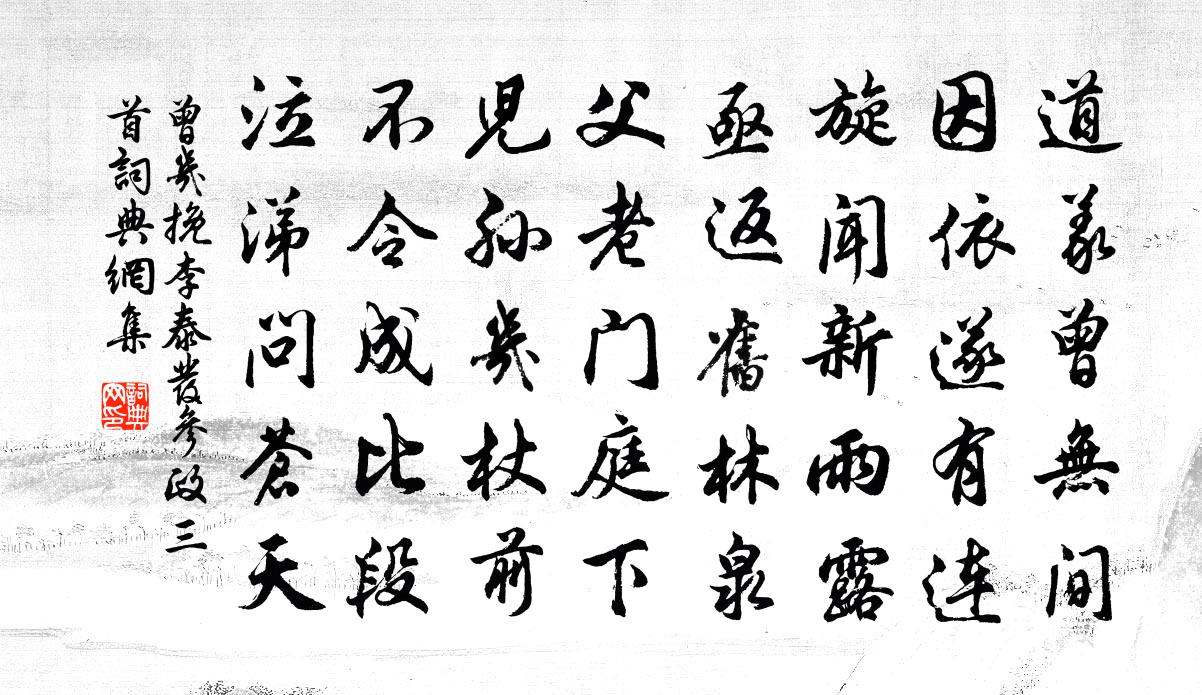 道義曾無間
因依遂有連
旋聞新雨露
亟返舊林泉
父老門庭下
兒孫几杖前
不令成比段
泣涕問蒼天
曾幾挽李泰發參政三
首詞典網集
詞典
网印